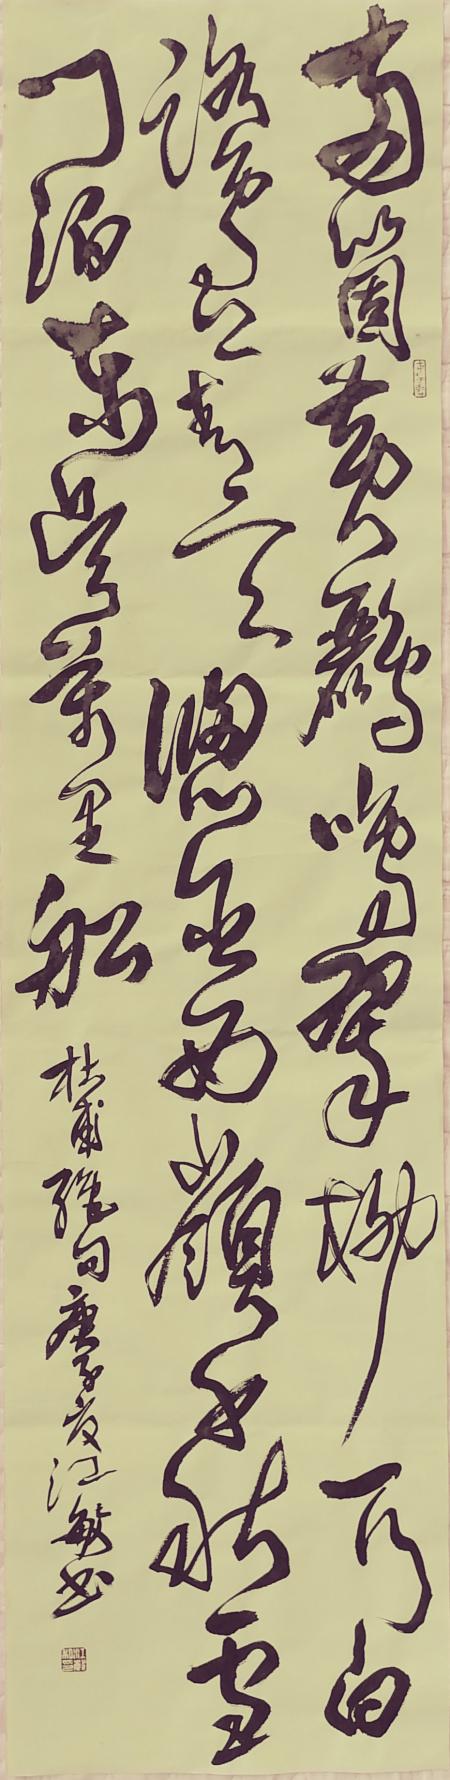 兩箇黃鸝鳴翠柳一行白
鷺上青天窗含西嶺千秋雪
門泊東吳萬里船
杜甫絕句庚子夏江敏书